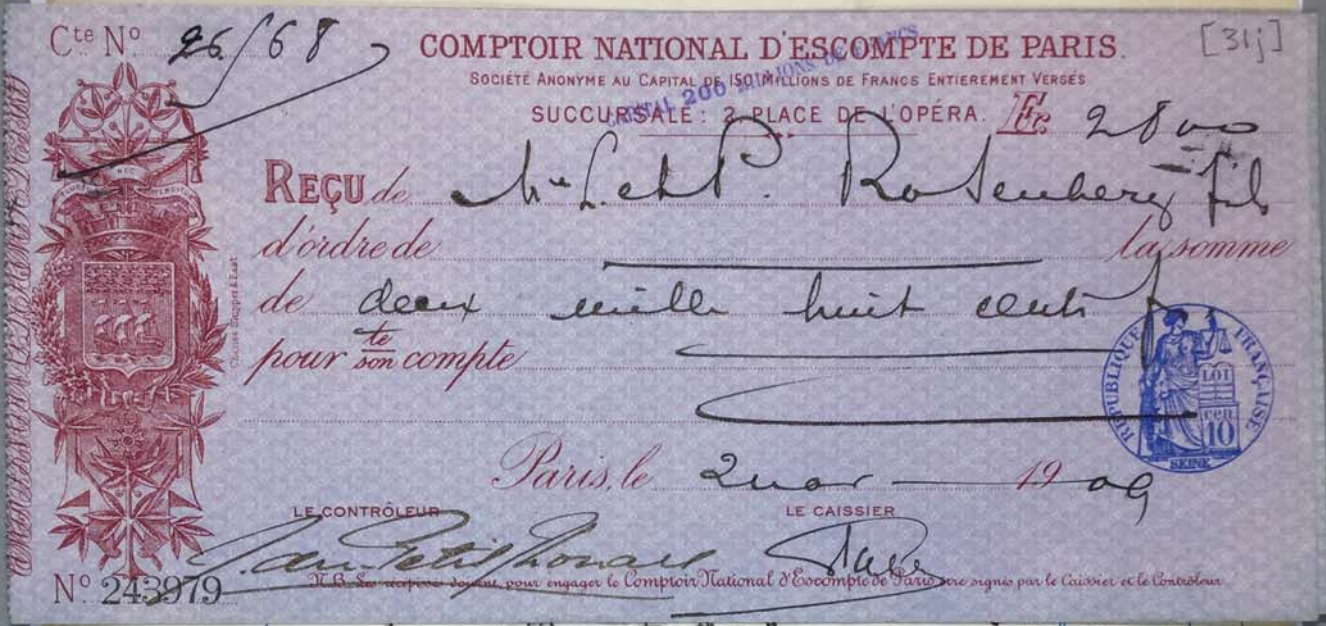 Cte No 26/68
[31j]
COMPTOIR NATIONAL D'ESCOMPTE DE PARIS.
SOCIÉTÉ ANONYME AU CAPITAL DE 150 MILLIONS DE FRANCS ENTIEREMENT VERSÉS
CAPITAL 200 MILLIONS DE FRANCS
SUCCURSALE : 2, PLACE DE L'OPÉRA. Fr. 2800
REÇU de L. et P. Rosenberg fils
d'ordre de la somme
de deux mille huit cents f
pour te son compte
RÉPUBLIQUE FRANÇAISE
LOI
cen
10
SEINE
Paris, le 2 mar 1909
LE CONTRÔLEUR LE CAISSIER
N.B. Les récépissés doivent, pour engager le Comptoir National d'Escompte de Paris, être signés par le Caissier et le Contrôleur
No 243979